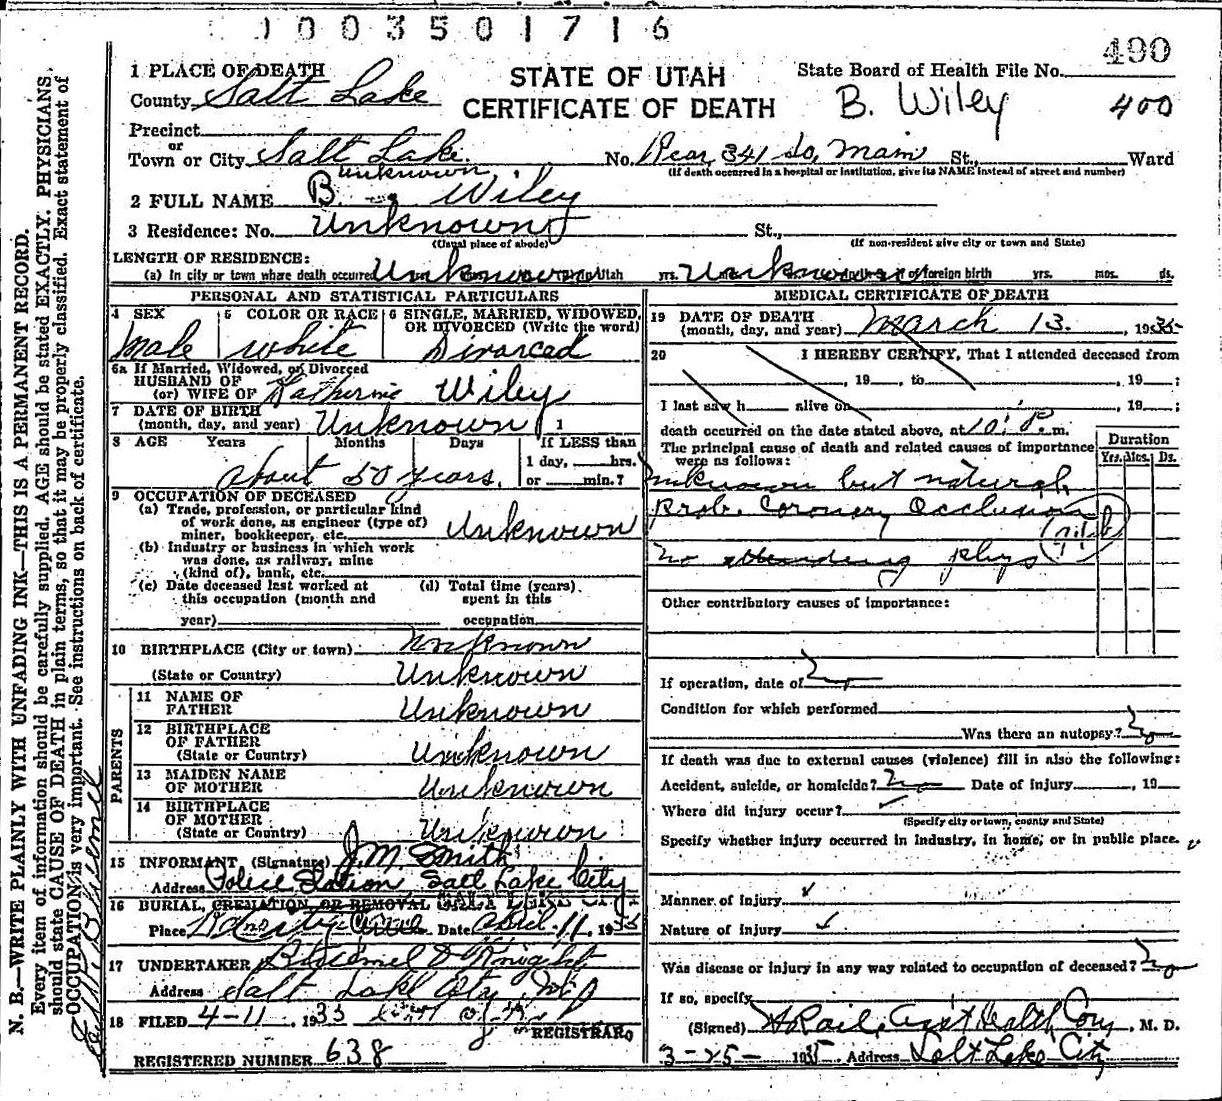 0 0 3 5 0 1 7 1 6
490
1 PLACE OF DEATH
STATE OF UTAH
State Board of Health File No.
County Salt Lake
CERTIFICATE OF DEATH
B. Wiley 400
Precinct
or
Town or City Salt Lake No. Rear 341 So. Main St., Ward
(If death occurred in a hospital or institution, give its NAME instead of street and number)
unknown
2 FULL NAME B. Wiley
3 Residence: No. Unknown St.,
(Usual place of abode) (If non-resident give city or town and State)
LENGTH OF RESIDENCE:
(a) In city or town where death occurred Unknown Utah yrs. Unknown of foreign birth yrs. mos. ds.
PERSONAL AND STATISTICAL PARTICULARS
4 SEX 5 COLOR OR RACE 6 SINGLE, MARRIED, WIDOWED, OR DIVORCED (Write the word)
Male White Divorced
6a If Married, Widowed, or Divorced
HUSBAND OF
(or) WIFE OF Katherine Wiley
7 DATE OF BIRTH
(month, day, and year) Unknown 1
8 AGE Years Months Days If LESS than
1 day, hrs.
about 50 years. or min.?
9 OCCUPATION OF DECEASED
(a) Trade, profession, or particular kind
of work done, as engineer (type of)
miner, bookkeeper, etc. Unknown
(b) Industry or business in which work
was done, as railway, mine
(kind of), bank, etc.
(c) Date deceased last worked at
this occupation (month and
year)
(d) Total time (years)
spent in this
occupation
10 BIRTHPLACE (City or town) Unknown
(State or Country) Unknown
PARENTS
11 NAME OF
FATHER Unknown
12 BIRTHPLACE
OF FATHER
(State or Country) Unknown
13 MAIDEN NAME
OF MOTHER Unknown
14 BIRTHPLACE
OF MOTHER
(State or Country) Unknown
15 INFORMANT (Signature) J. M. Smith
Address Police Station Salt Lake City
16 BURIAL, CREMATION, OR REMOVAL SALT LAKE CITY
Place City Date April 11, 1935
17 UNDERTAKER & Knight
Address Salt Lake City,
18 FILED 4-11, 1935
REGISTRAR
REGISTERED NUMBER 638
MEDICAL CERTIFICATE OF DEATH
19 DATE OF DEATH
(month, day, and year) March 13. , 1935
20 I HEREBY CERTIFY, That I attended deceased from
, 19 , to , 19 ;
I last saw h alive on , 19 ;
death occurred on the date stated above, at 10: P. m.
The principal cause of death and related causes of importance
were as follows:
Duration
Yrs. Mos. Ds.
unknown but natural
Prob. Coronary Occlusion
no attending phys
Other contributory causes of importance:
If operation, date of no
Condition for which performed
Was there an autopsy? no
If death was due to external causes (violence) fill in also the following:
Accident, suicide, or homicide? no Date of injury , 19
Where did injury occur?
(Specify city or town, county and State)
Specify whether injury occurred in industry, in home, or in public place.
Manner of injury
Nature of injury
Was disease or injury in any way related to occupation of deceased? no
If so, specify
(Signed) Asst Health Com , M. D.
3-25- 1935 . Address Salt Lake City
N. B.—WRITE PLAINLY WITH UNFADING INK—THIS IS A PERMANENT RECORD.
Every item of information should be carefully supplied. AGE should be stated EXACTLY. PHYSICIANS
should state CAUSE OF DEATH in plain terms, so that it may be properly classified. Exact statement of
OCCUPATION is very important. See instructions on back of certificate.